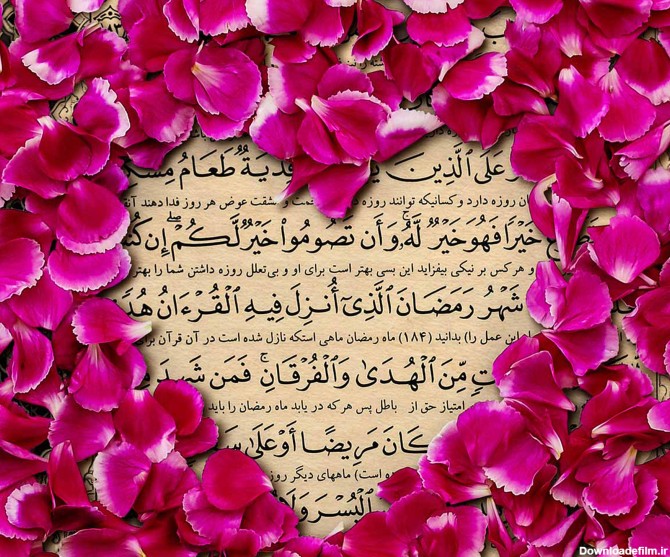 عَلَى ٱلَّذِينَ فِدْيَةٌ طَعَامُ
روزه دارد و کسانیکه توانند روزه و مشقت عوض هر روز فدا دهند
خَيْرًا فَهُوَ خَيْرٌ لَّهُۥ ۚ وَأَن تَصُومُوا۟ خَيْرٌ لَّكُمْ ۖ إِن
و هر کس بر نیکی بیفزاید این بسی بهتر است برای او و بی‌تعلل روزه داشتن شما را بهتر
شَهْرُ رَمَضَانَ ٱلَّذِىٓ أُنزِلَ فِيهِ ٱلْقُرْءَانُ هُدًى
این عمل را) بدانید (۱۸۴) ماه رمضان ماهی استکه نازل شده است در آن قرآن برای
مِّنَ ٱلْهُدَىٰ وَٱلْفُرْقَانِ ۚ فَمَن شَهِدَ
امتیاز حق از باطل پس هر که در یابد ماه رمضان را باید
كَانَ مَرِيضًا أَوْ عَلَىٰ
است) ماههای دیگر
ٱلْيُسْرَ
Downloadefilm.ir